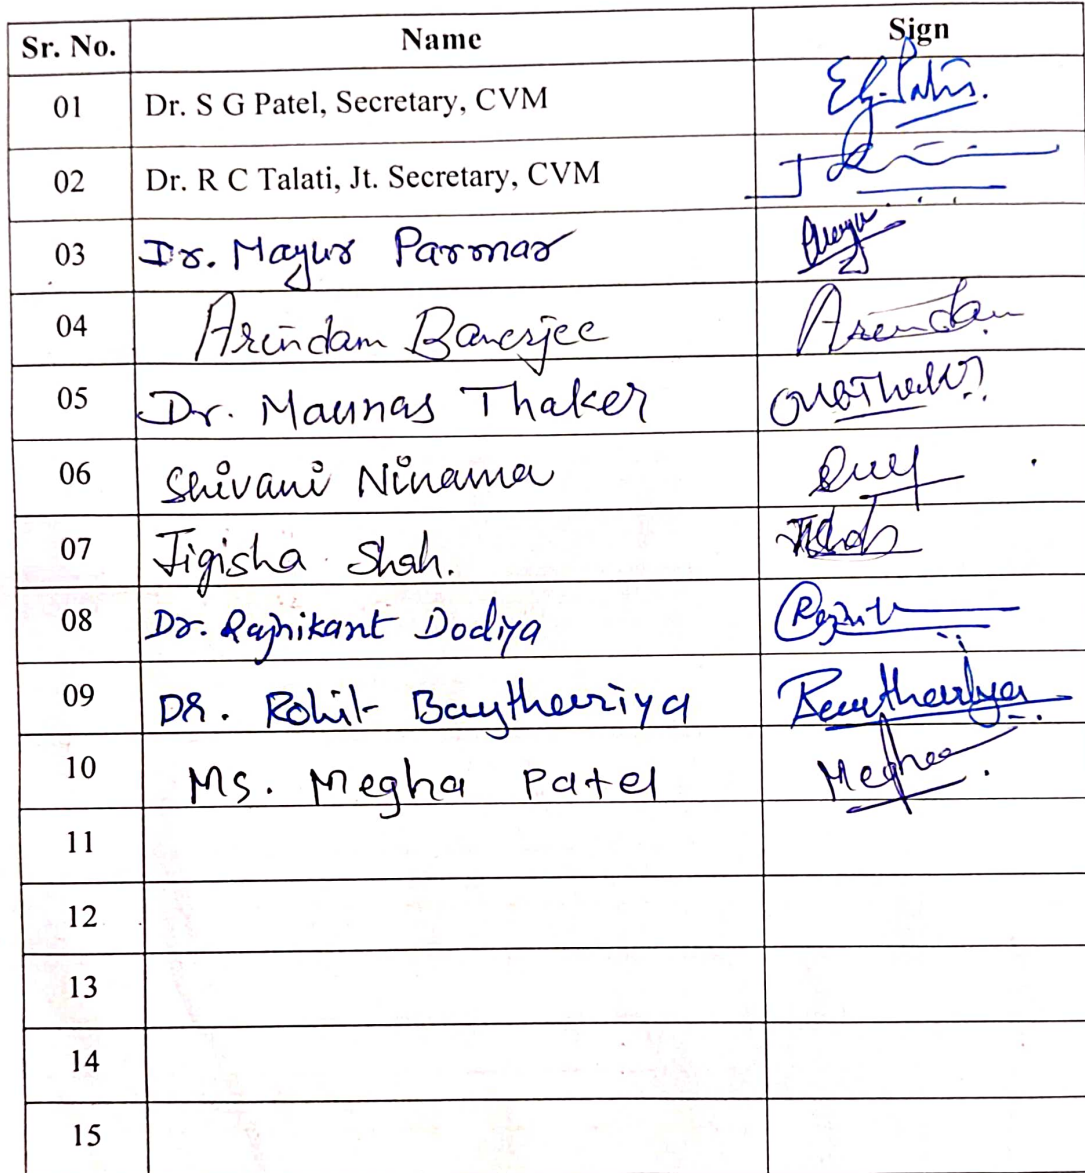 Sr. No. Name Sign
01 Dr. S G Patel, Secretary, CVM
02 Dr. R C Talati, Jt. Secretary, CVM
03 Dr. Mayur Parmar
04 Arindam Banerjee Arindam
05 Dr. Maunas Thaker
06 Shivani Ninama
07 Jigisha Shah.
08 Dr. Rajnikant Dodiya
09 DR. Rohit Baytheriya
10 Ms. Megha Patel Megha
11
12
13
14
15